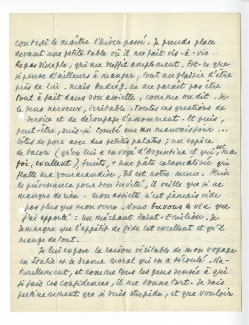 contredit le maître l'hiver passé. Je prends place
devant une petite table où il me fait vis-à-vis.
Repas simple, qui me suffit amplement. Est-ce que
je pense d'ailleurs à manger, tout au plaisir d'être
près de lui. Mais André G. ne me paraît pas être
tout à fait dans son assiette, comme on dit. Je
le sens nerveux, irritable. Toutes ces questions de
service et de découpage l'assomment. Et puis,
peut-être, suis-je tombé sur un mauvais
Côtes de porc avec des petites patates, une espèce
de bacon (qu'on lui a envoyé d'Argentine et qui, ma
foi, excellent), fruits, une pâte
flatte ma gourmandise, tel est notre menu. Plein
de prévenance pour son invité, il veille que je ne
manque de rien. Mon assiette n'est jamais vide
pas plus que mon verre. Nous buvons le vin que
j'ai apporté : un méchant Saint-Émilion. Je
remarque que l'appétit de Gide est excellent et qu'il
mange de tout.
Je lui expose la raison véritable de mon voyage
en Italie et le drame moral qui en a résulté. Na-
turellement, et comme tous les gens sensés à qui
je fais ces confidences, il me donne tort. Je sais
pertinemment que je suis stupide, et que vouloir